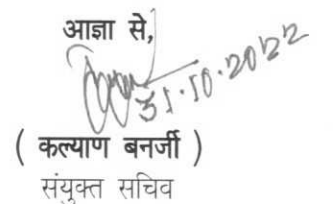 आज्ञा से,
31.10.2022
( कल्याण बनर्जी )
संयुक्त सचिव